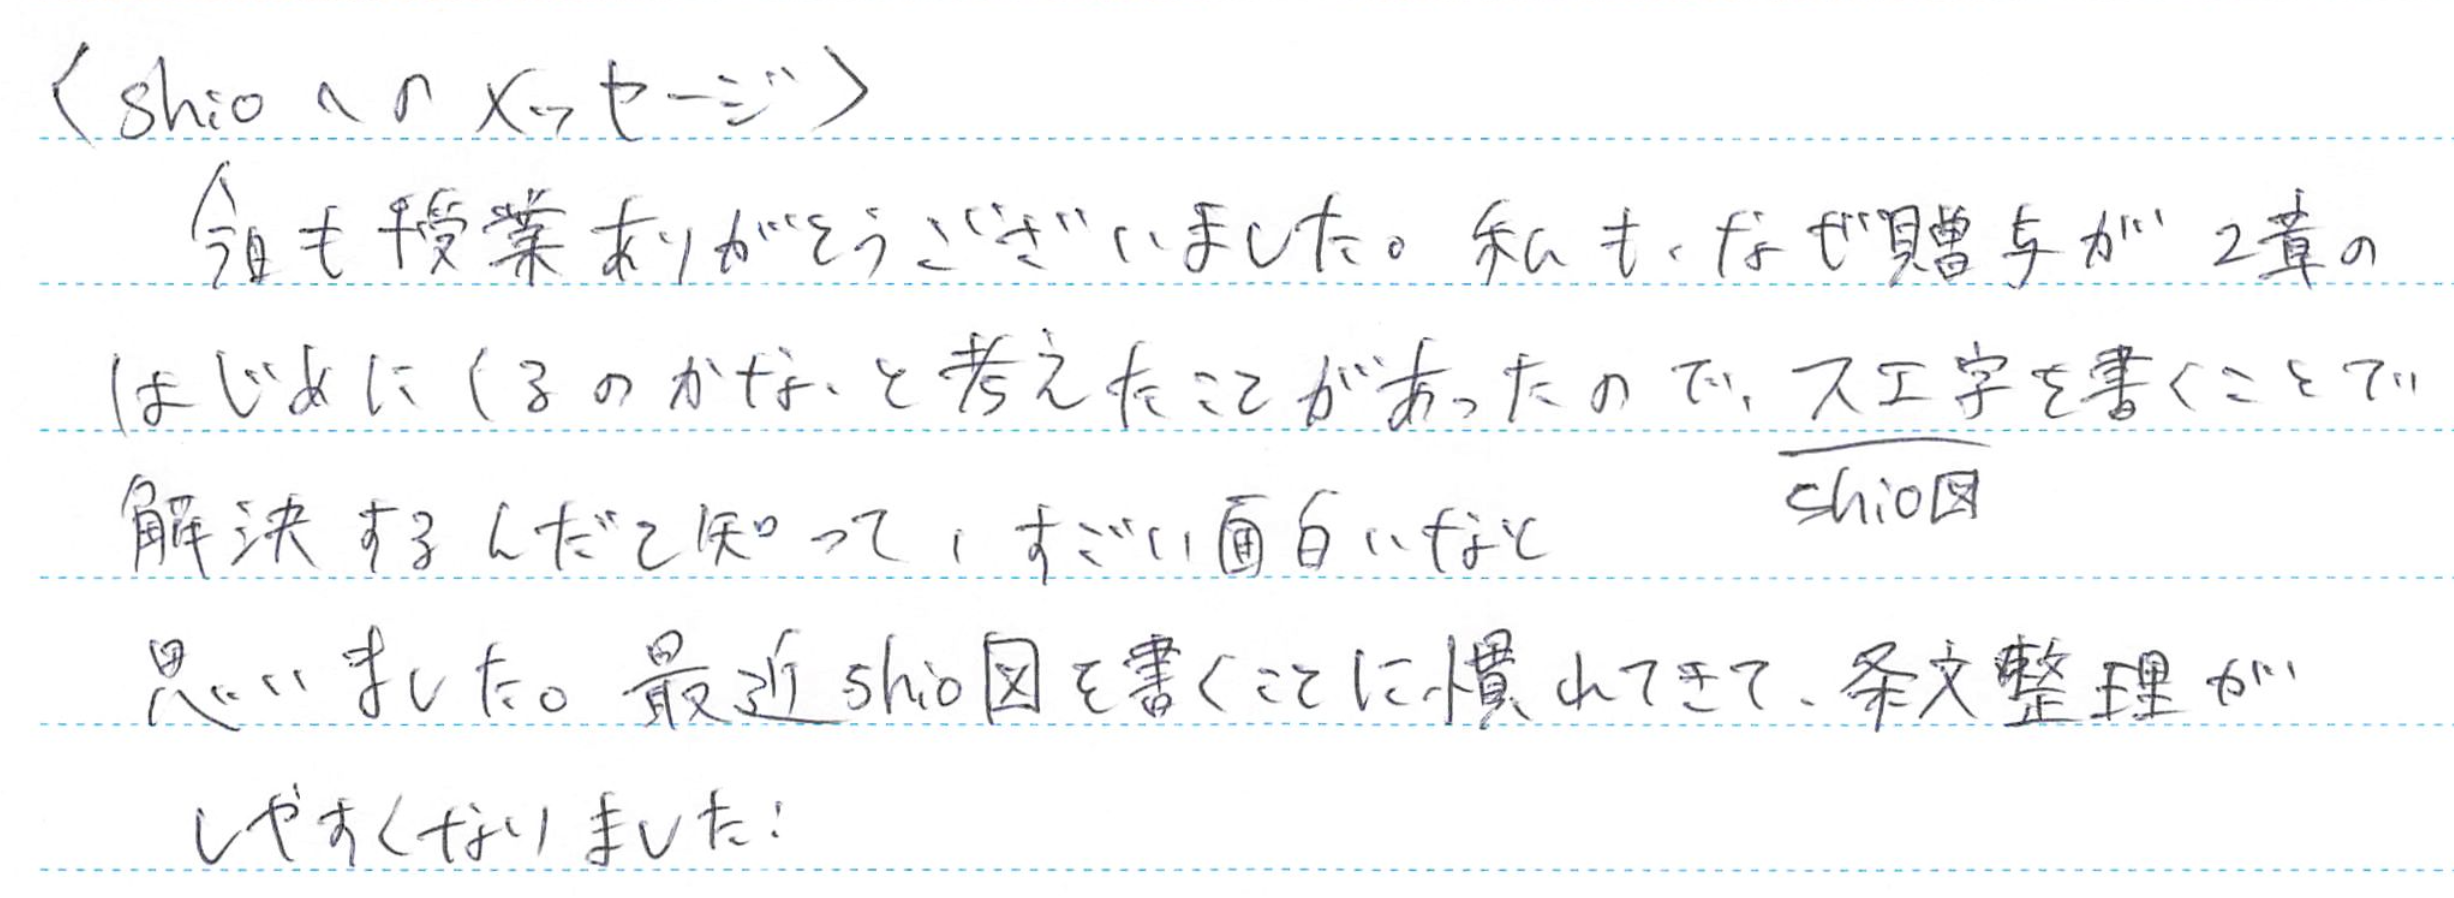 〈shioへのメッセージ〉
今日も授業ありがとうございました。私も、なぜ贈与が2章の
はじめにくるのかな、と考えたことがあったので、ス工字を書くことで
shio図
解決するんだと知って、すごい面白いなと
思いました。最近shio図を書くことに慣れてきて、条文整理が
しやすくなりました!